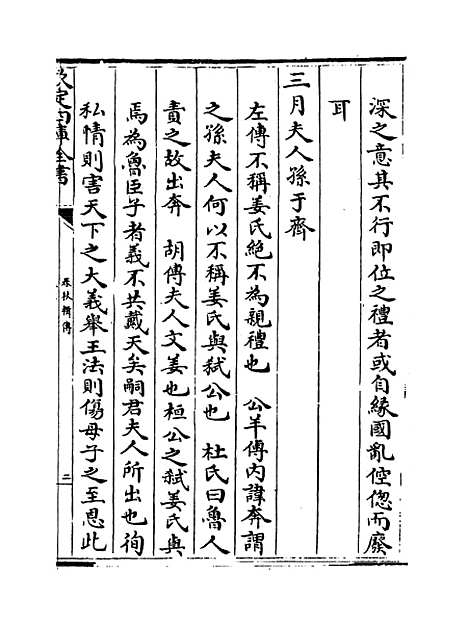 深之意其不行即位之禮者或自緣國亂倥偬而廢
耳
三月夫人孫于齊
左傳不稱姜氏絕不為親禮也　公羊傳内諱奔謂
之孫夫人何以不稱姜氏與弑公也　杜氏曰魯人
責之故出奔　胡傳夫人文姜也桓公之弑姜氏與
焉為魯臣子者義不共戴天矣嗣君夫人所出也徇
私情則害天下之大義舉王法則傷母子之至恩此
欽定四庫全書
春秋輯傳
二